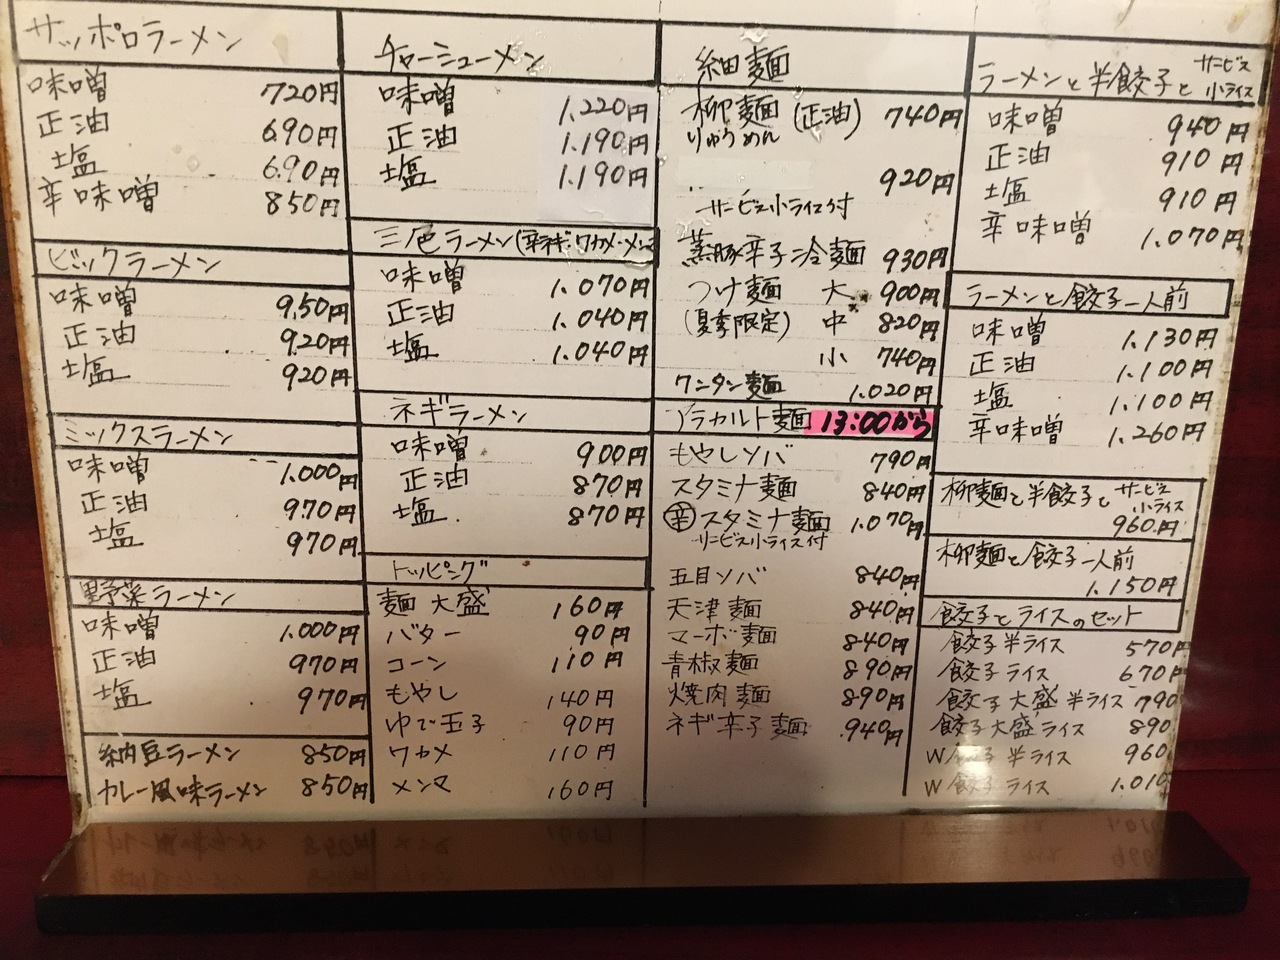 サッポロラーメン
味噌 720円
正油 690円
塩 690円
辛味噌 850円
ビックラーメン
味噌 950円
正油 920円
塩 920円
ミックスラーメン
味噌 1.000円
正油 970円
塩 970円
野菜ラーメン
味噌 1.000円
正油 970円
塩 970円
納豆ラーメン 850円
カレー風味ラーメン 850円
チャーシューメン
味噌 1.220円
正油 1.190円
塩 1.190円
三色ラーメン(辛ネギ・ワカメ・メンマ
味噌 1.070円
正油 1.040円
塩 1.040円
ネギラーメン
味噌 900円
正油 870円
塩 870円
トッピング
麺 大盛 160円
バター 90円
コーン 110円
もやし 140円
ゆで玉子 90円
ワカメ 110円
メンマ 160円
細麺
柳麺(正油) 740円
りゅうめん
920円
サービス小ライス付
蒸豚辛子冷麺 930円
つけ麺 大 900円
(夏季限定) 中 820円
小 740円
ワンタン麺 1.020円
アラカルト麺 13:00から
もやしソバ 790円
スタミナ麺 840円
辛スタミナ麺 1.070円
サービス小ライス付
五目ソバ 840円
天津麺 840円
マーボ麺 840円
青椒麺 890円
焼肉麺 890円
ネギ辛子麺 940円
ラーメンと半餃子とサービス小ライス
味噌 940円
正油 910円
塩 910円
辛味噌 1.070円
ラーメンと餃子一人前
味噌 1.130円
正油 1.100円
塩 1.100円
辛味噌 1.260円
柳麺と半餃子とサービス小ライス
960円
柳麺と餃子一人前
1.150円
餃子とライスのセット
餃子 半ライス 570円
餃子 ライス 670円
餃子大盛 半ライス 790
餃子大盛 ライス 890
W餃子 半ライス 960
W餃子 ライス 1.010